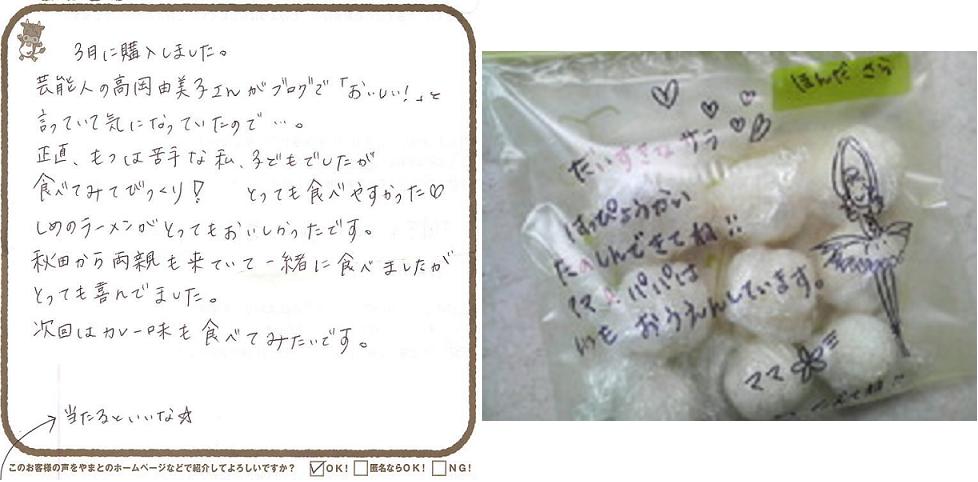 3月に購入しました。
芸能人の高岡由美子さんがブログで「おいしい!」と
言っていて気になっていたので…。
正直、もつは苦手な私、子どもでしたが
食べてみてびっくり! とっても食べやすかった♡
しめのラーメンがとってもおいしかったです。
秋田から両親も来ていて一緒に食べましたが
とっても喜んでました。
次回はカレー味も食べてみたいです。
当たるといいな☆
このお客様の声をやまとのホームページなどで紹介してよろしいですか? ☑OK! □匿名ならOK! □NG!
ほんだ さら
だいすきなサラ
はっぴょうかい
たのしんできてね!!
ママとパパは
いつも おうえんしています。
ママ